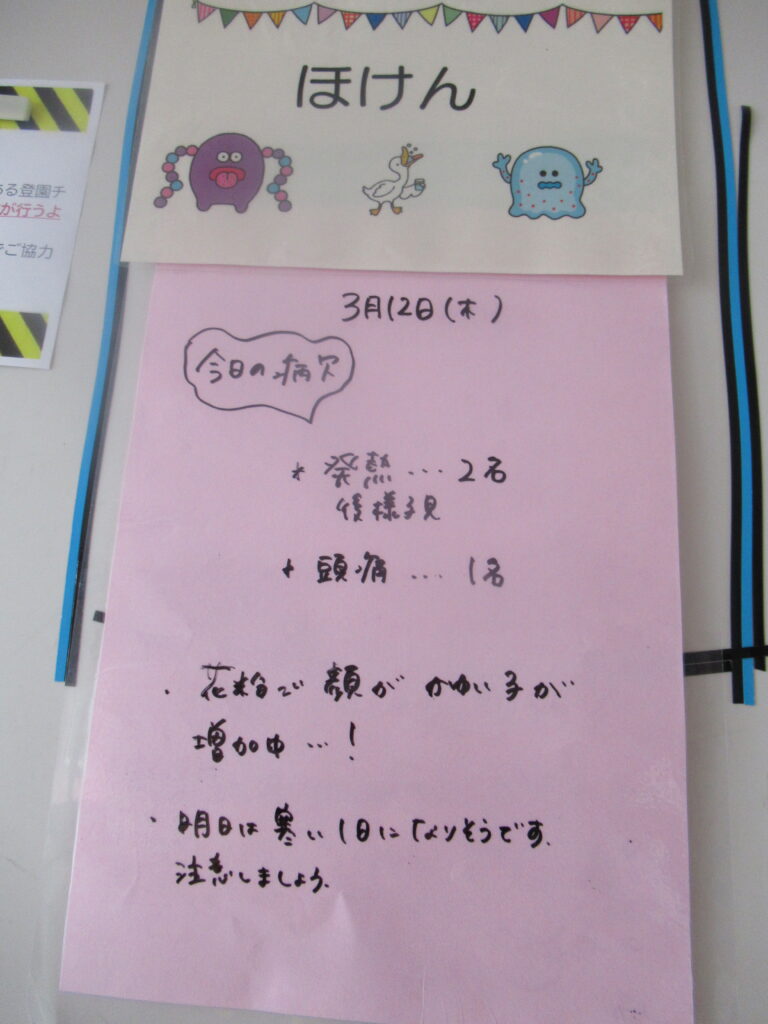 ほけん
ある登園チ
が行うよ
でご協力
3月12日(木)
今日の病欠
* 発熱… 2名
後様子見
+ 頭痛… 1名
・花粉で顔がかゆい子が
増加中…!
・明日は寒い1日になりそうです.
注意しましょう.